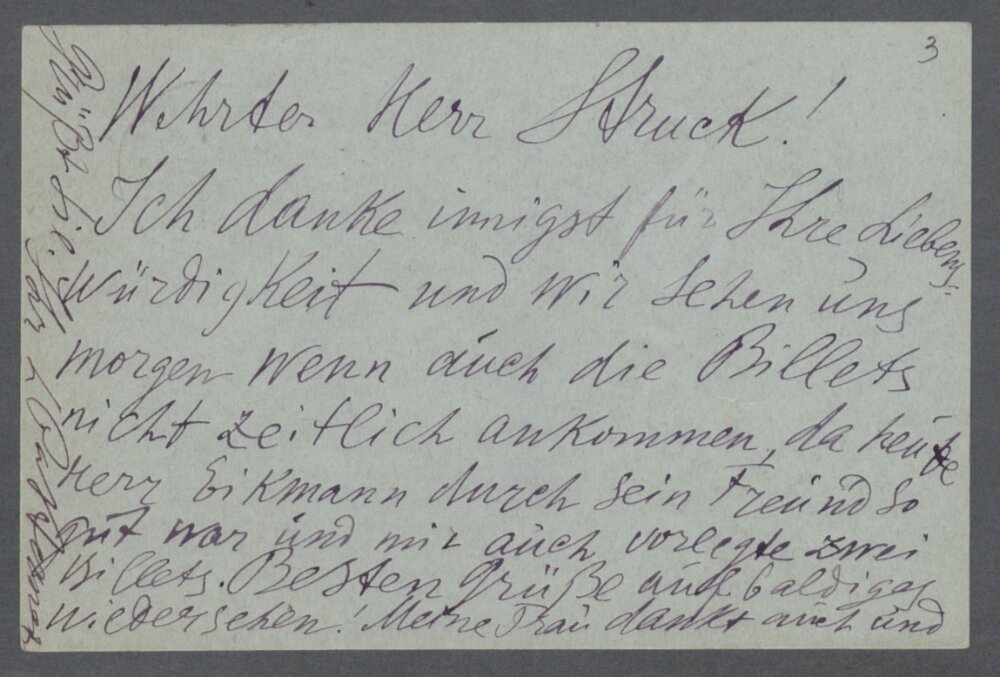 3
Wehrter Herr Struck!
Ich danke innigst für Ihre Liebens-
würdigkeit und wir sehen uns
morgen wenn auch die Billets
nicht zeitlich ankommen, da heute
Herr Eikmann durch sein Freund so
gut war und mir auch vorlegte zwei
Billets. Besten Grüße auf baldiges
wiedersehen! Meine Frau dankt auch und
grüßt Sie. Ihr